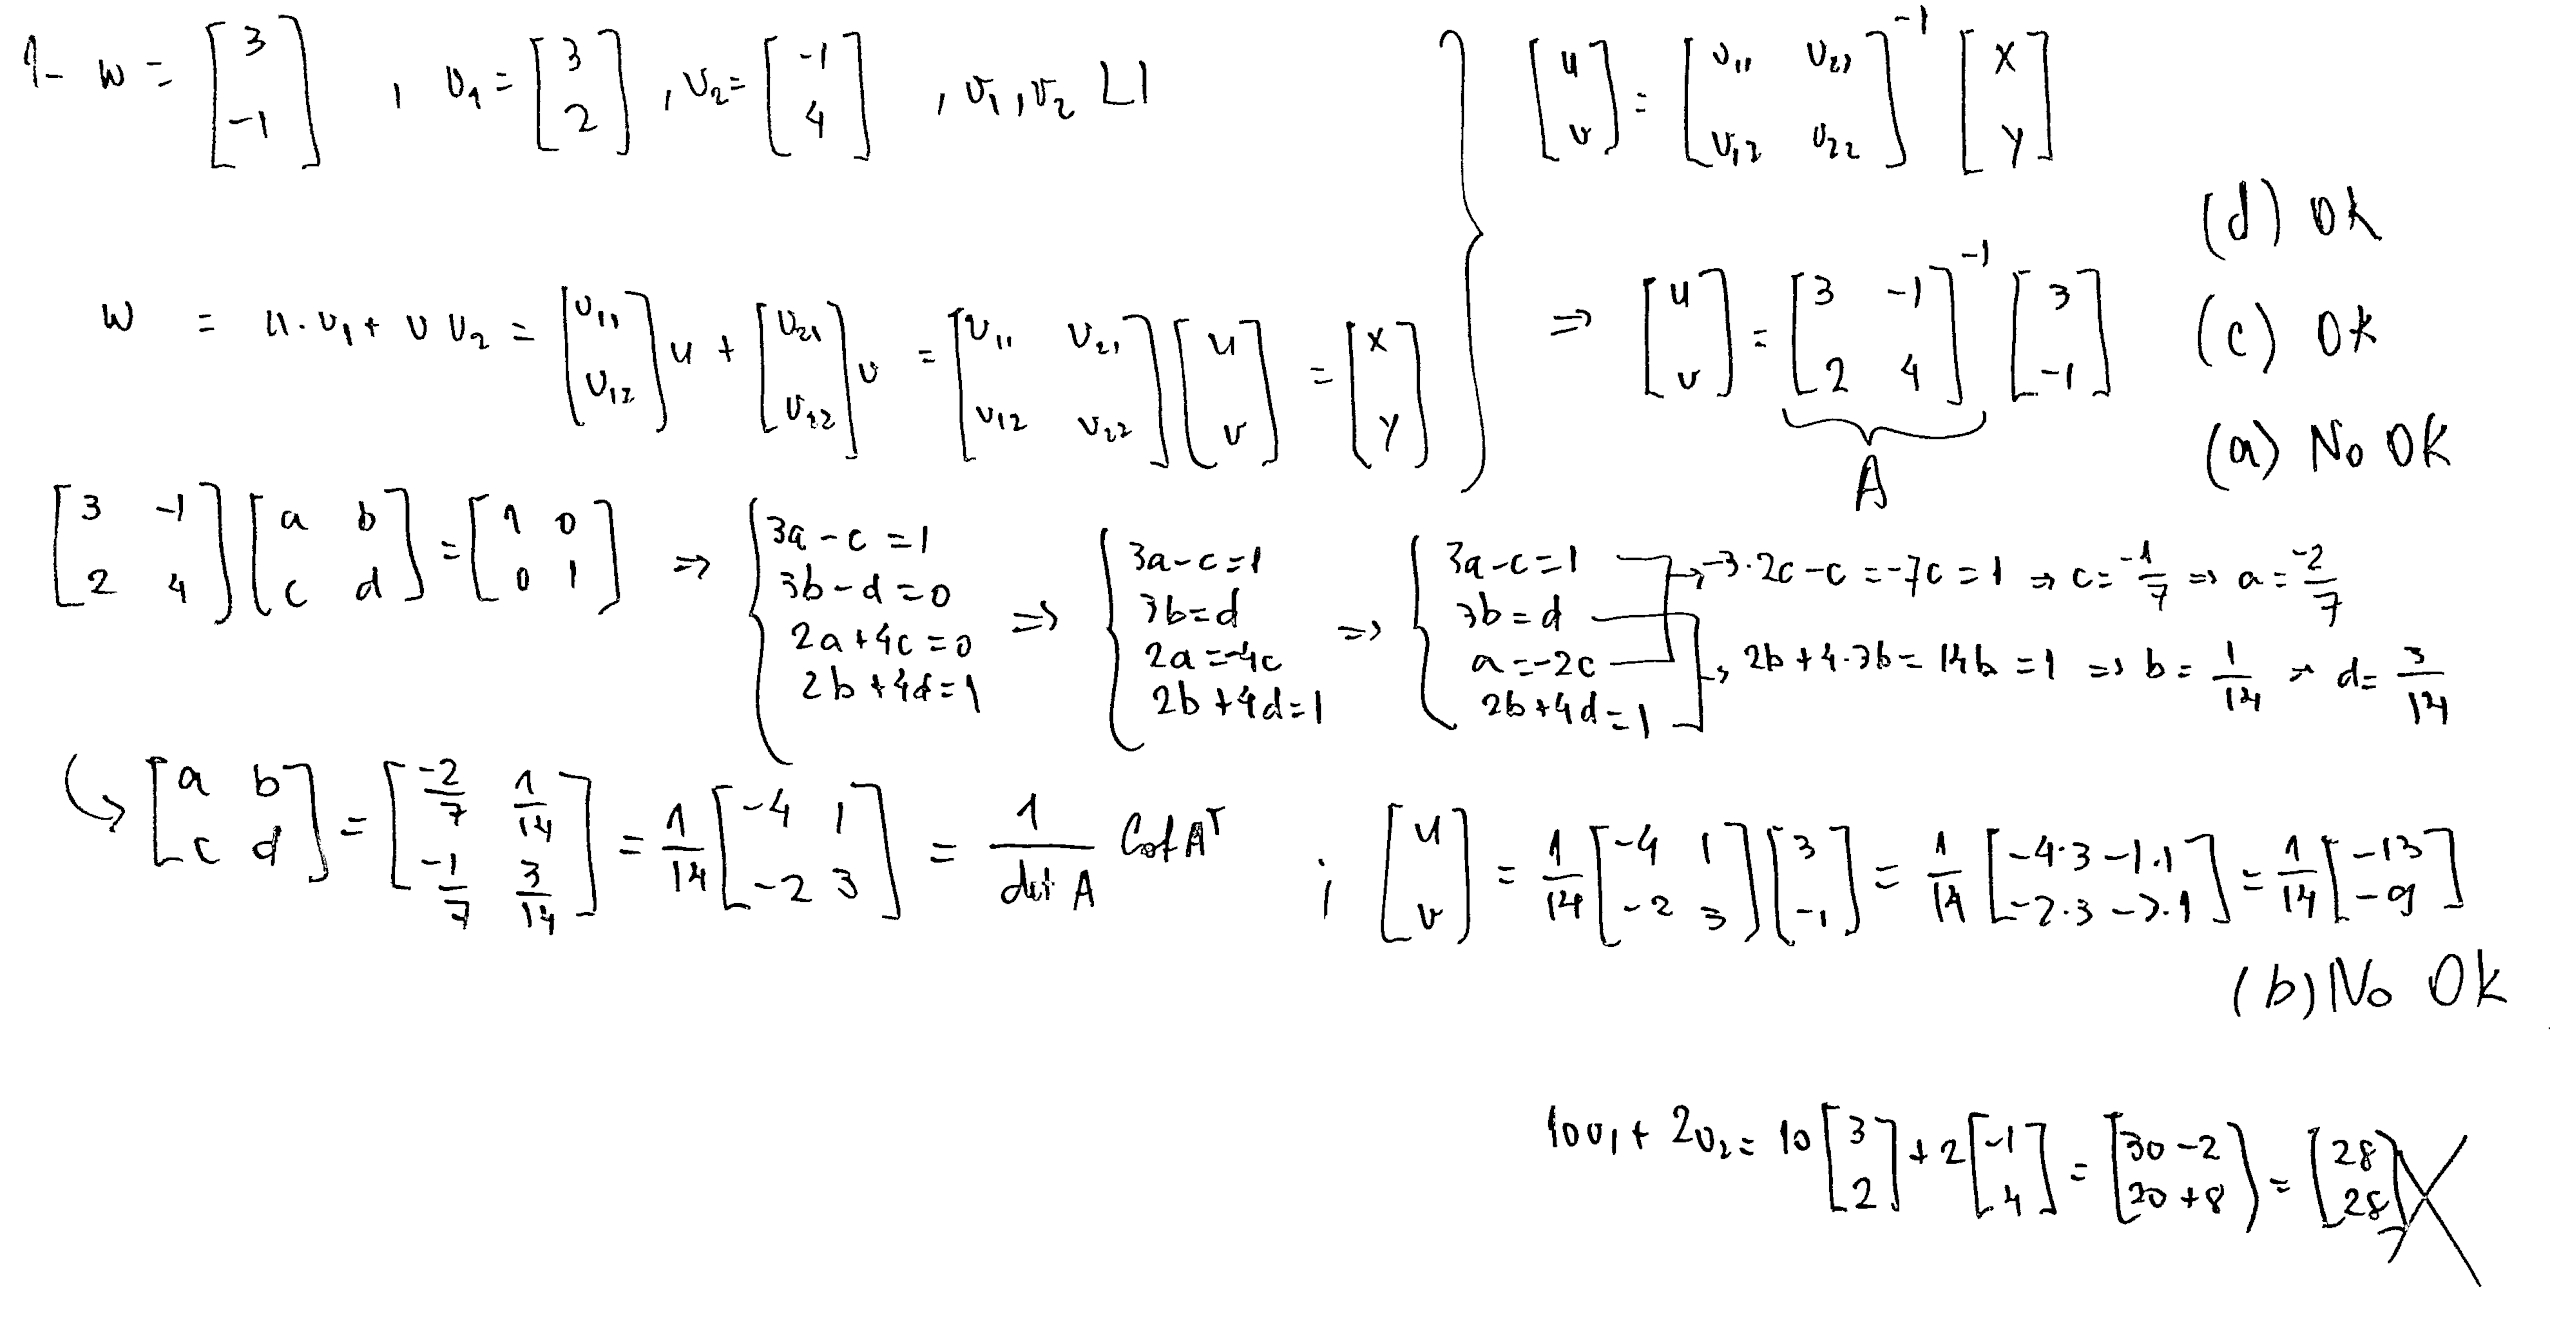 1- w = [3; -1] , v₁ = [3; 2] , v₂ = [-1; 4] , v₁, v₂ LI
[u; v] = [v₁₁ v₂₁; v₁₂ v₂₂]⁻¹ [x; y]
(d) OK
w = u·v₁ + v v₂ = [v₁₁; v₁₂] u + [v₂₁; v₂₂] v = [v₁₁ v₂₁; v₁₂ v₂₂] [u; v] = [x; y]
⇒ [u; v] = [3 -1; 2 4]⁻¹ [3; -1]
(c) OK
A
(a) No OK
[3 -1; 2 4] [a b; c d] = [1 0; 0 1] ⇒ { 3a - c = 1
3b - d = 0
2a + 4c = 0
2b + 4d = 1
⇒ { 3a - c = 1
3b = d
2a = -4c
2b + 4d = 1
⇒ { 3a - c = 1
3b = d
a = -2c
2b + 4d = 1
→ -3·2c - c = -7c = 1 ⇒ c = -1/7 ⇒ a = -2/7
→ 2b + 4·3b = 14b = 1 ⇒ b = 1/14 ⇒ d = 3/14
↪ [a b; c d] = [-2/7 1/14; -1/7 3/14] = 1/14 [-4 1; -2 3] = 1/det A Cof Aᵀ
; [u; v] = 1/14 [-4 1; -2 3] [3; -1] = 1/14 [-4·3 -1·1; -2·3 -3·1] = 1/14 [-13; -9]
(b) No OK
10v₁ + 2v₂ = 10 [3; 2] + 2 [-1; 4] = [30 - 2; 20 + 8] = [28; 28]